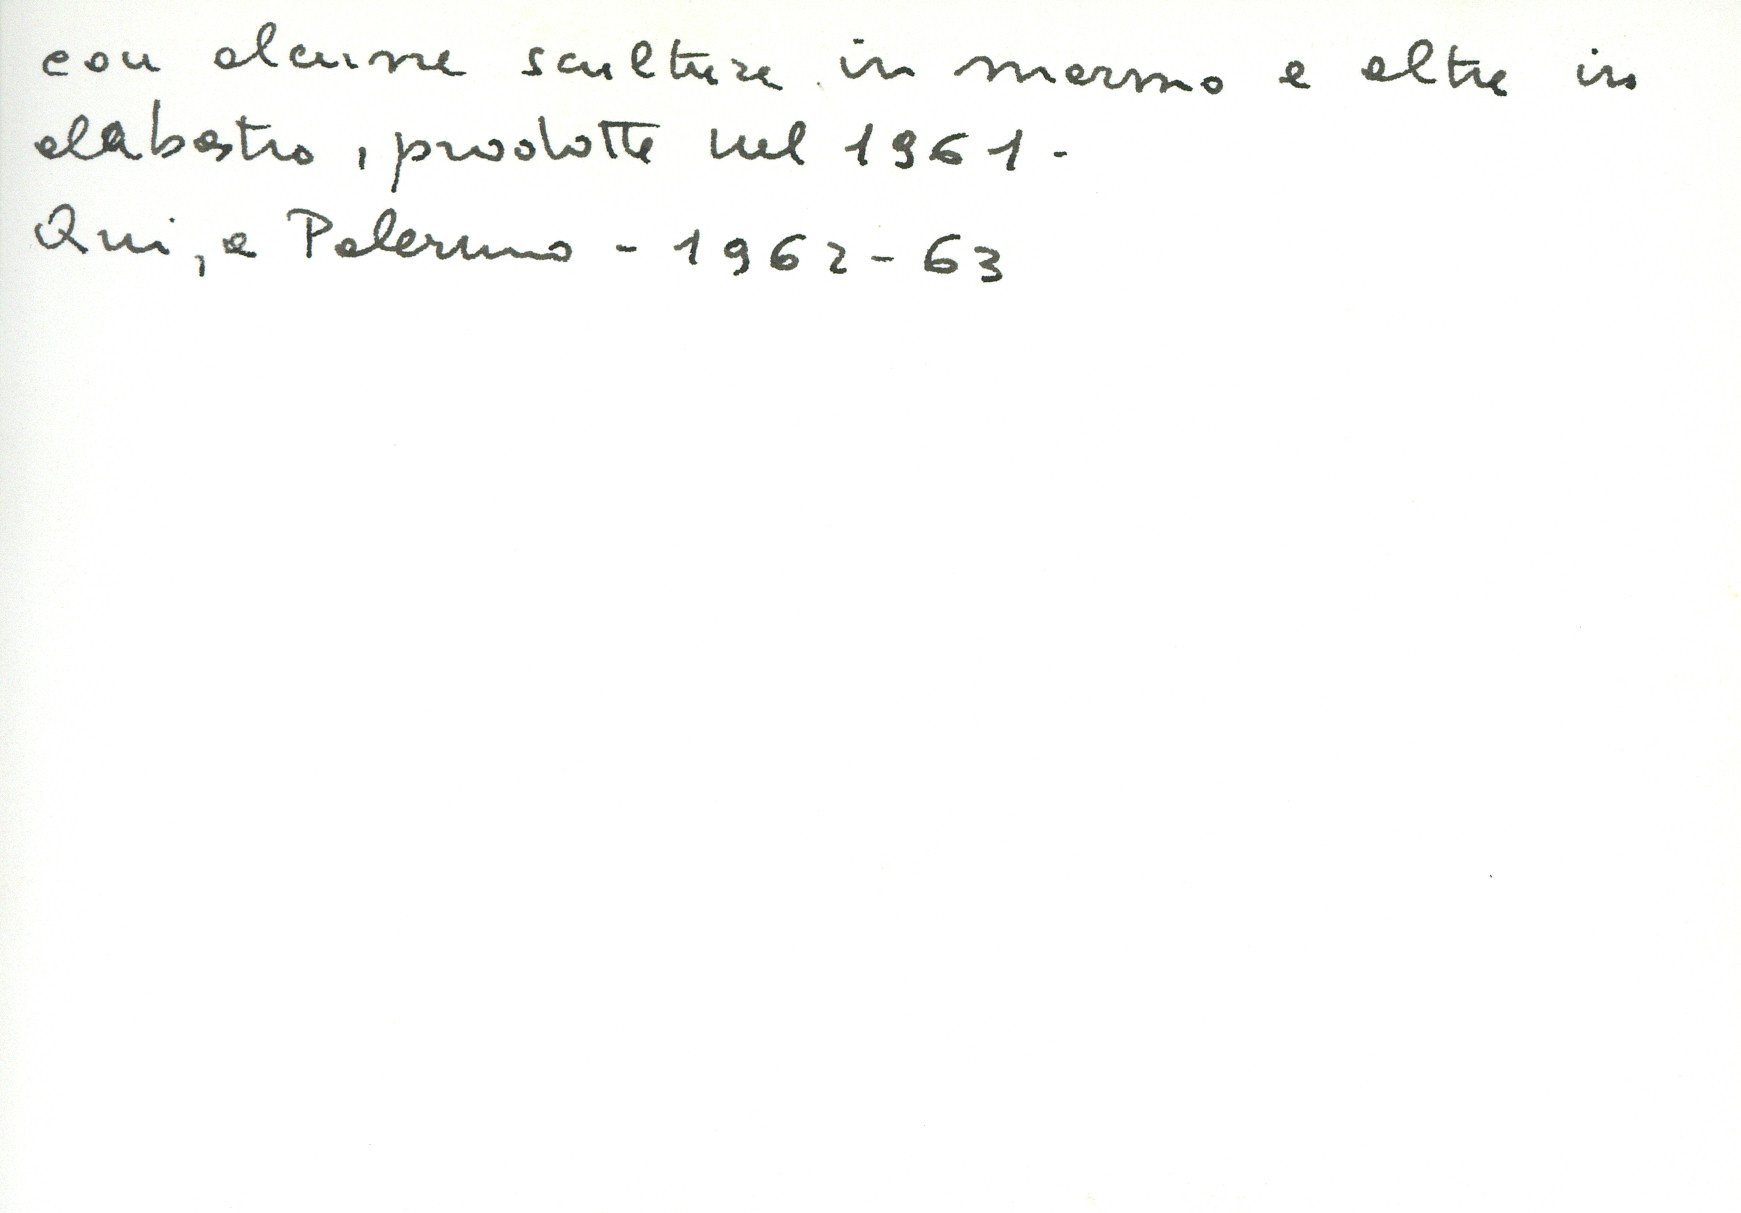 con alcune sculture in marmo e altre in
alabastro, prodotte nel 1961-
Qui, a Palermo - 1962-63